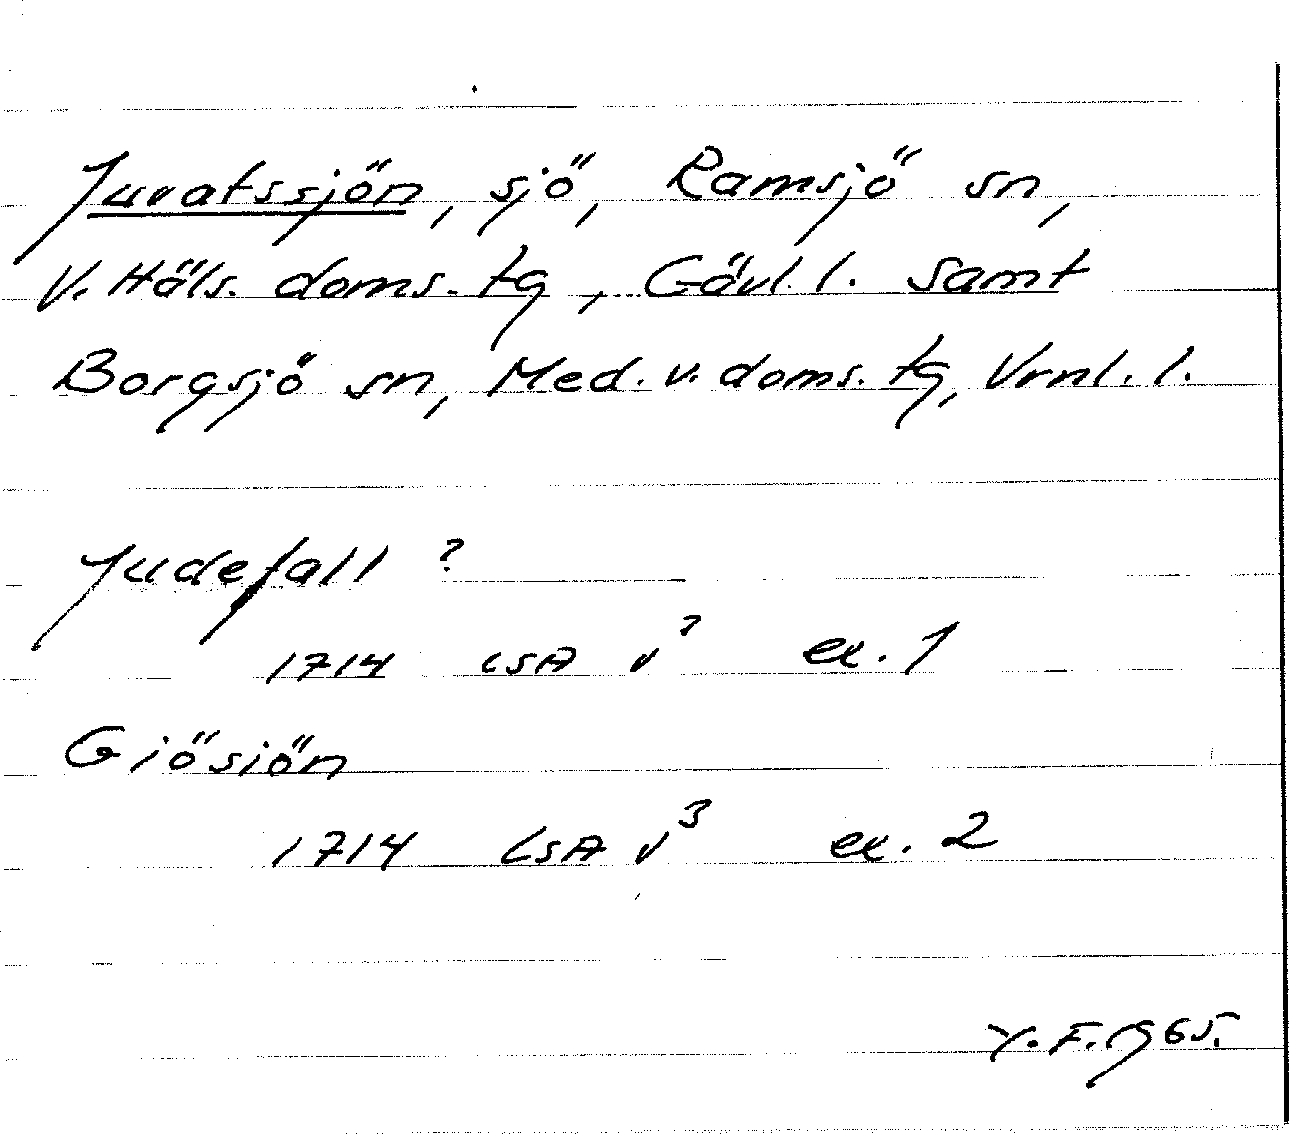 Juvatssjön, sjö, Ramsjö sn,
V. Häls. doms. tg, Gävl. l. samt
Borgsjö sn, Med. v. doms. tg, Vrnl. l.
Judefall ?
1714 LSA v? ex. 1
Giösiön
1714 LSA v3 ex. 2
Y. F. 1965.